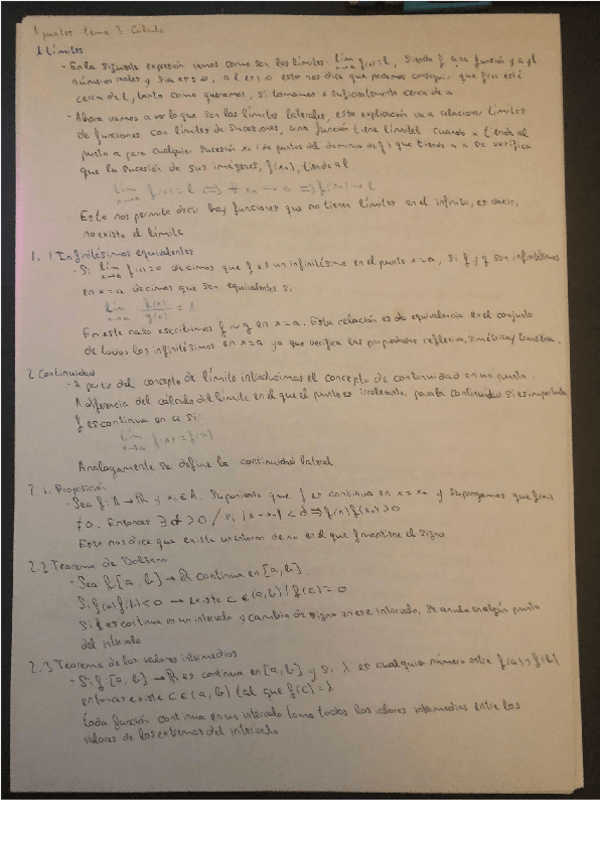 Apuntes tema 3 Cálculo
1 Límites
- En la siguente expresión vemos como son los límites: lim x→a f(x)=l, siendo f una función y a y l
números reales y si a es ∞, o l es ∞ esto nos dice que podemos conseguir que f(x) esté
cerca de l, tanto como queramos, si tomamos x suficientemente cerca de a
- Ahora vamos a ver lo que son los límites laterales, esta explicación va a relacionar límites
de funciones con límites de sucesiones, una función tiene límite l cuando x tiende al
punto a para cualquier sucesión xn (de puntos del dominio de f) que tiende a a se verifica
que la sucesión de sus imágenes, f(xn), tiende a l
lim x→a f(x)=l ⟺ ∀ xn → a ⟹ f(xn)→l
Esto nos permite decir hay funciones que no tienen límites en el infinito, es decir,
no existe el límite
1.1 Infinitésimos equivalentes
- Si lim x→a f(x)=0 decimos que f es un infinitésimo en el punto x=a, si f y g son infinitésimos
en x=a decimos que son equivalentes si
lim x→a f(x)/g(x) = 1
En este caso escribimos f ~ g en x=a. Esta relación es de equivalencia en el conjunto
de todos los infinitésimos en x=a ya que verifica las propiedades reflexiva, simétrica y transitiva.
2 Continuidad
- A partir del concepto de límite introducimos el concepto de continuidad en un punto.
A diferencia del cálculo del límite en el que el punto es irrelevante, para la continuidad si es importante
f es continua en a si:
lim x→a f(x)=f(a)
Analogamente se define la continuidad lateral
2.1. Proposición
- Sea f: A→ℝ y x₀∈A. Suponiendo que f es continua en x=x₀ y supongamos que f(x₀)
≠0. Entonces ∃ δ>0 / si |x-x₀|<δ ⟹ f(x)f(x₀)>0
Esto nos dice que existe un entorno de x₀ en el que f mantiene el signo
2.2 Teorema de Bolzano
- Sea f:[a,b]→ℝ continua en [a,b]
Si f(a)f(b)<0 → existe c∈(a,b) / f(c)=0
Si f es continua en un intervalo y cambia de signo en ese intervalo, se anula en algún punto
del intervalo
2.3 Teorema de los valores intermedios
- Si f:[a,b]→ℝ es continua en [a,b] y si λ es cualquier número entre f(a) y f(b)
entonces existe c∈(a,b) tal que f(c)=λ
toda función continua en un intervalo toma todos los valores intermedios entre los
valores de los extremos del intervalo